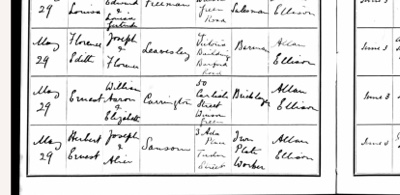 29 Louisa Edwin & Louisa Gertrude Freeman Green Road Salesman Ellison
May 29 Florence Edith Joseph & Florence Leavesley Victoria Buildings Barford Road Barman Allan Ellison
May 29 Ernest William Aaron & Elizabeth Carrington 50 Carlisle Street Winson Green Bricklayer Allan Ellison June 3
May 29 Herbert Ernest Joseph & Alice Sansom 3 Ada Place Tudor Street Iron Plate Worker Allan Ellison June 3